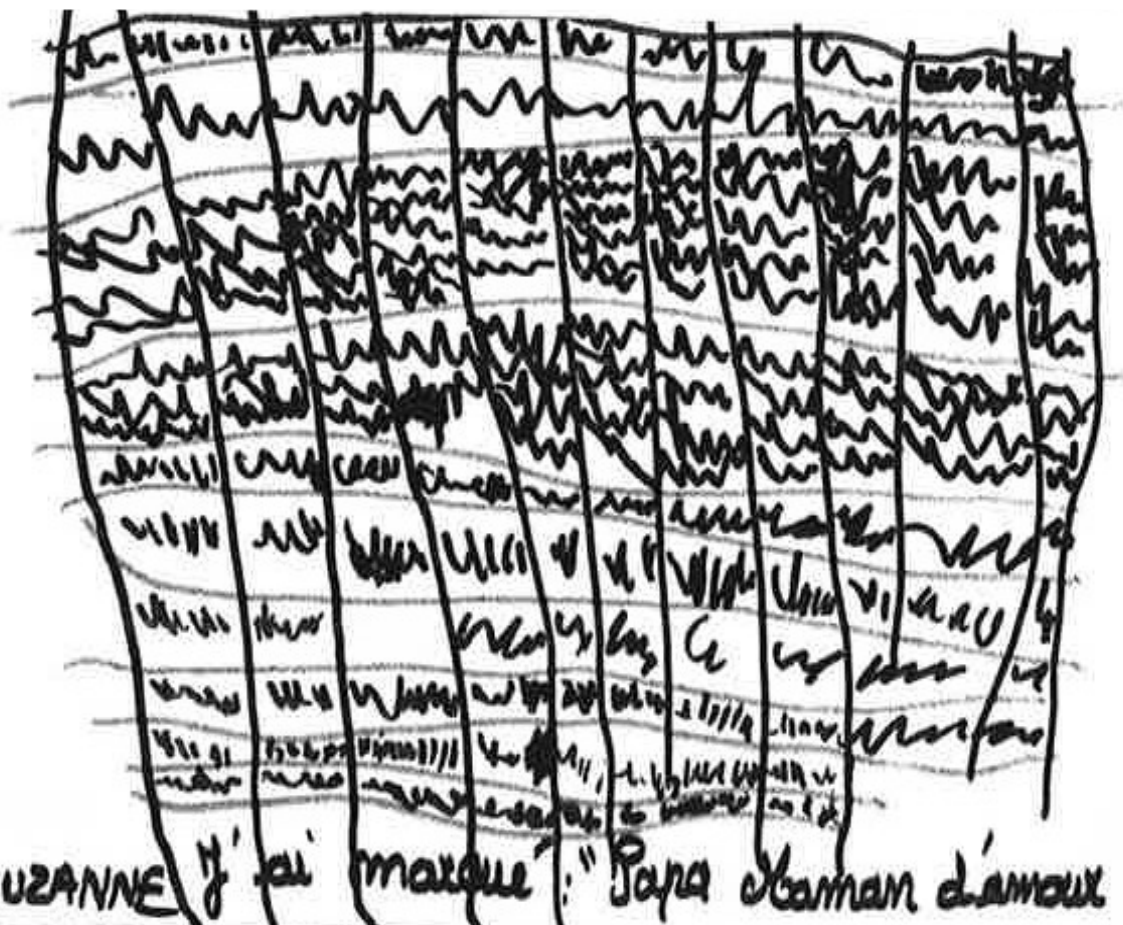 UZANNE J'ai marqué : "Papa Maman d'amour